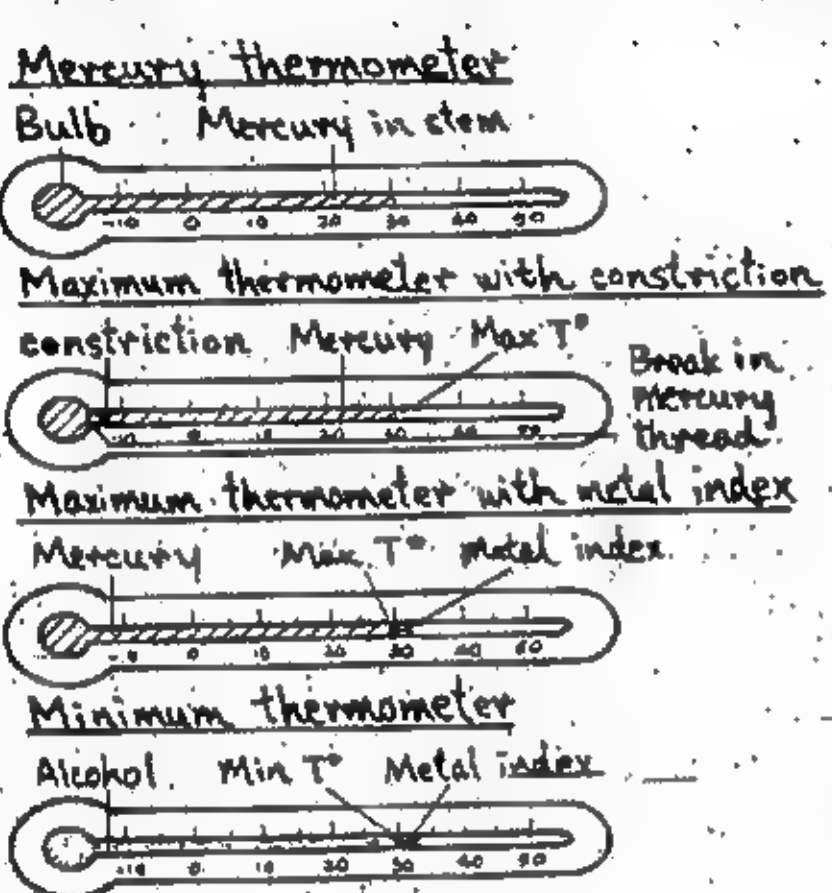 Mercury thermometer
Bulb Mercury in stem
-10 0 10 20 30 40 50
Maximum thermometer with constriction
constriction Mercury Max T°
Break in
Mercury
thread
-10 0 10 20 30 40 50
Maximum thermometer with metal index
Mercury Max T° Metal index
-10 0 10 20 30 40 50
Minimum thermometer
Alcohol Min T° Metal index
-10 0 10 20 30 40 50